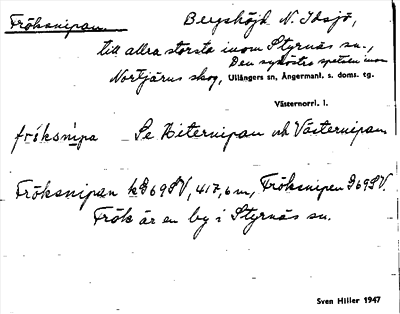 Fröksnipan Bergshöjd N. Idsjö,
till allra största inom Styrnäs sn.,
Den sydöstra spetsen inom
Nortjärns skog, Ullångers sn, Ångermanl. s. doms. tg.
Västernorrl. l.
frö́ksnìpa Se Hiternipan och Västernipan
Fröksnipan kB 69 SV, 417,6 m, Fröksnipen B 69 SV.
Frök är en by i Styrnäs sn.
Sven Hiller 1947